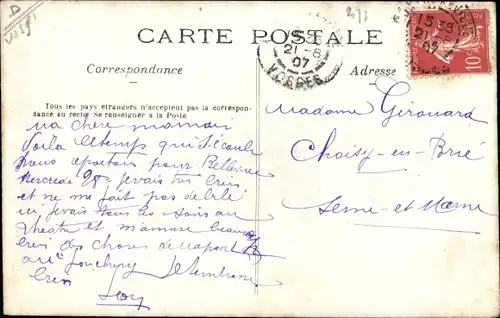 CARTE POSTALE
Correspondance
Adresse
Tous les pays étrangers n'acceptent pas la correspon-
dance au recto. Se renseigner à la Poste
21-8
07
VOSGES
15
21-8
07
10c
Ma chère maman
Voilà le temps qui s'écoule
nous repartons pour Bellevue
Mercredi 28 je vais très bien
et ne me fait pas de bile
ici je vais tous les soirs au
théâtre et m'amuse beaucoup
bien des choses de ma part
à Mr Jonchery Je t'embrasse
bien
Madame Girouard
Choisy-en-Brie
Seine-et-Marne